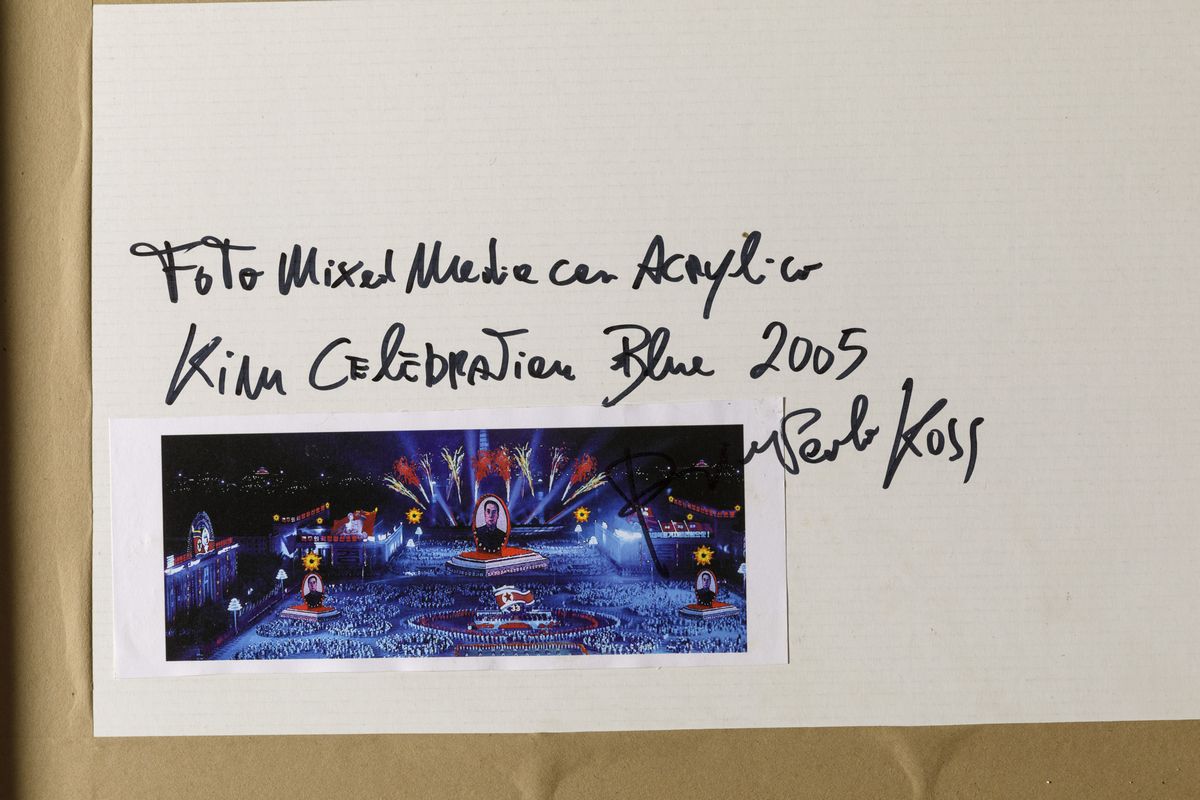 Foto Mixed Media con Acrylico
Kim Celebration Blue 2005
Koss
33